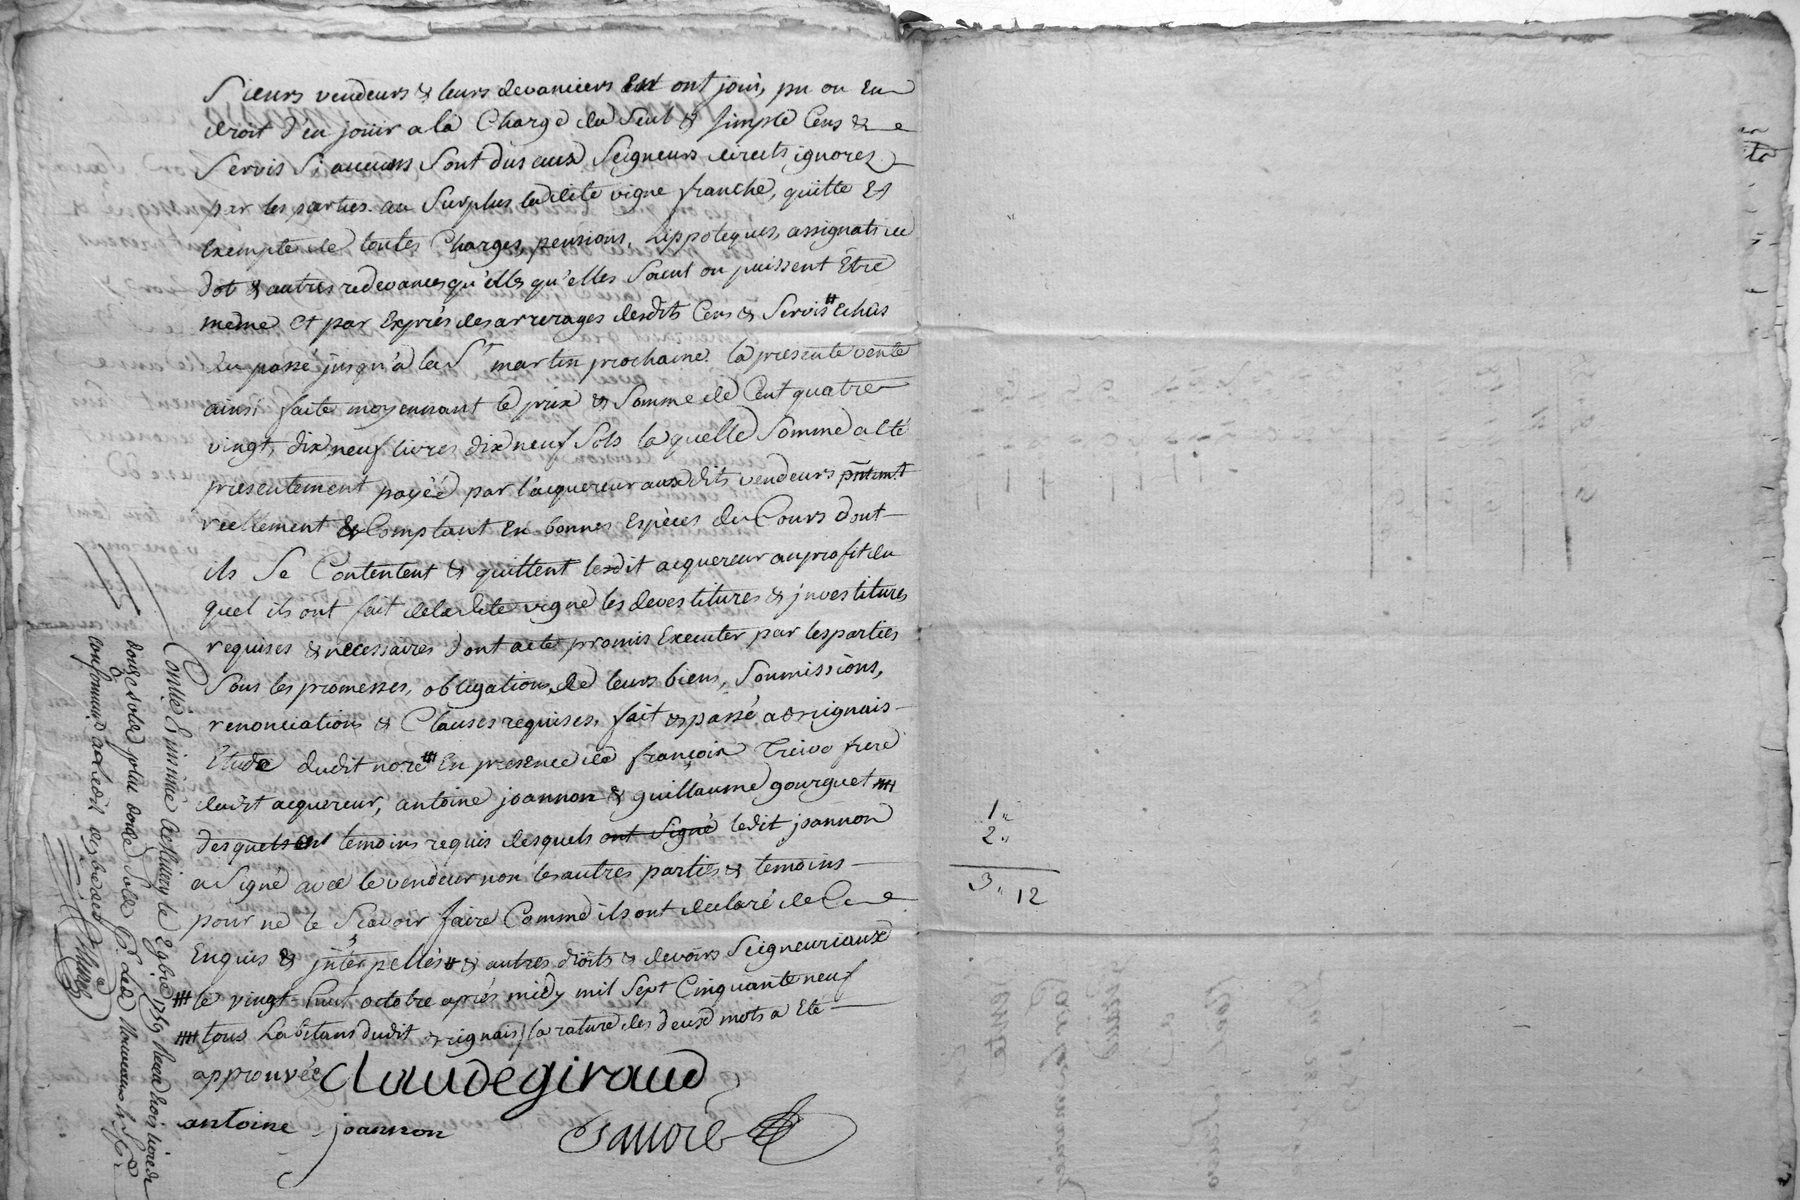 Sieurs vendeurs & leurs devanciers ont joüi, pu ou Eu
droit d'en joüir a la Charge du Seul & Simple Cens &
Servis Si aucuns Sont dus aux Seigneurs directs ignorez
par les parties au Surplus ladite vigne franche, quitte Et
Exempte de toutes Charges, pensions, hippoteques, assignats de
dot & autres redevances qu'elles qu'elles Soient ou puissent Être
meme et par Exprés des arrerages desdits Cens & Servis # Echus
du passé jusqu'a la St martin prochaine. la presente vente
ainsi faite moyennant le prix & Somme de Cent quatre
vingt dix neuf livres dix neuf Sols laquelle Somme a Eté
presentement payée par l'acquereur auxdits vendeurs
reellement & Comptant En bonnes Espèces du Cours dont
ils Se Contentent & quittent ledit acquereur au profit du
quel ils ont fait de ladite vigne les devestitures & jnvestitures
requises & necessaires dont acte promis Executer par les parties
Sous les promesses, obligations de leurs biens, Soumissions,
renonciations & Clauses requises, fait & passé a Brignais
Etude dudit nore ## En presence de françois Treivo frere
dudit acquereur, antoine joannon & guillaume gourguet ###
desquels temoins requis desquels ont Signé ledit joannon
a Signé avec le vendeur non les autres parties & temoins
pour ne le Scavoir faire Comme ils ont declaré de Ce
Enquis & jnterpellés # & autres droits & devoirs Seigneuriaux
## le vingt huit octobre aprés midy mil Sept Cinquante neuf
### tous habitans dudit Brignais / la rature des deux mots a Eté
approuvée claude giraud
antoine joannon
Conllé & insinué le 1759 Reçu trois livres
douze sols plus douze sols pr. les nouveaux
Conformement au
1"
2"
3" 12